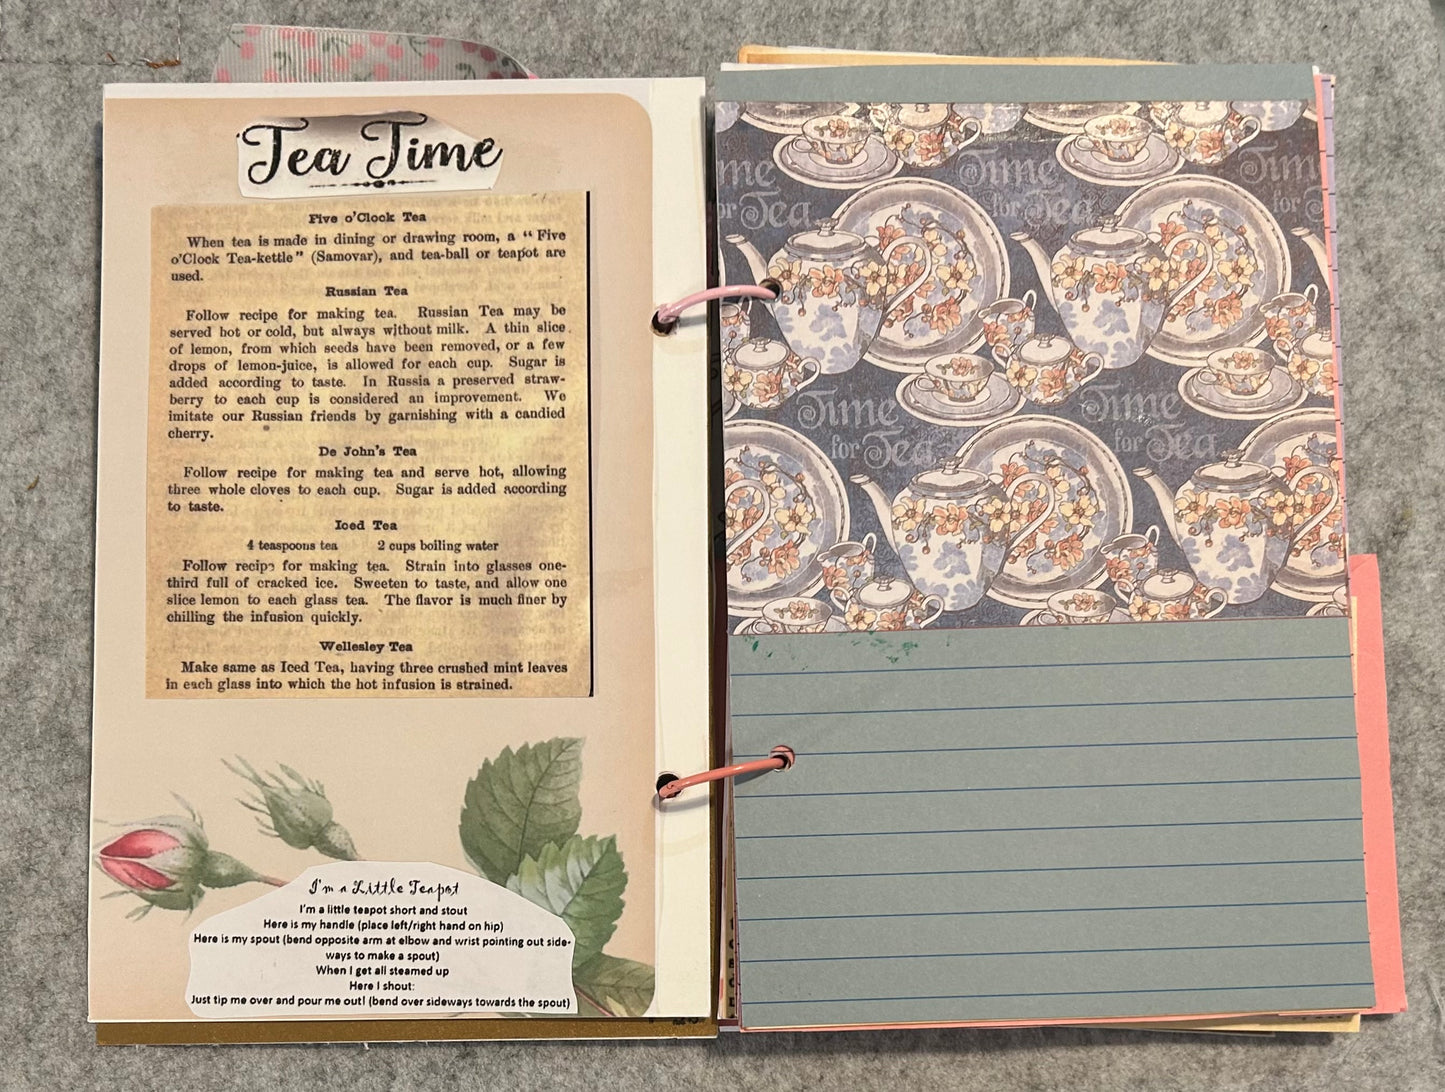 Tea Time
Five o'Clock Tea
When tea is made in dining or drawing room, a "Five
o'Clock Tea-kettle" (Samovar), and tea-ball or teapot are
used.
Russian Tea
Follow recipe for making tea. Russian Tea may be
served hot or cold, but always without milk. A thin slice
of lemon, from which seeds have been removed, or a few
drops of lemon-juice, is allowed for each cup. Sugar is
added according to taste. In Russia a preserved straw-
berry to each cup is considered an improvement. We
imitate our Russian friends by garnishing with a candied
cherry.
De John's Tea
Follow recipe for making tea and serve hot, allowing
three whole cloves to each cup. Sugar is added according
to taste.
Iced Tea
4 teaspoons tea 2 cups boiling water
Follow recipe for making tea. Strain into glasses one-
third full of cracked ice. Sweeten to taste, and allow one
slice lemon to each glass tea. The flavor is much finer by
chilling the infusion quickly.
Wellesley Tea
Make same as Iced Tea, having three crushed mint leaves
in each glass into which the hot infusion is strained.
I'm a Little Teapot
I'm a little teapot short and stout
Here is my handle (place left/right hand on hip)
Here is my spout (bend opposite arm at elbow and wrist pointing out side-
ways to make a spout)
When I get all steamed up
Here I shout:
Just tip me over and pour me out! (bend over sideways towards the spout)
me
or Tea
Time
for Tea
Time
for T
Time
for Tea
Time
for Tea